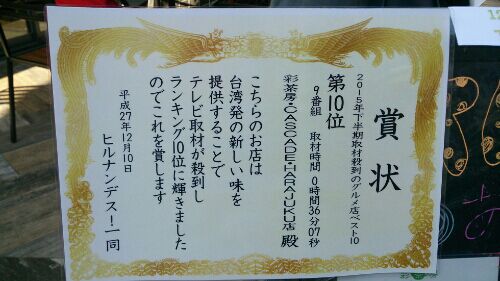 賞状
2015年下半期取材殺到のグルメ店ベスト10
第10位
9番組 取材時間 0時間36分07秒
彩茶房・CASCADE・HARAJUKU店 殿
こちらのお店は
台湾発の新しい味を
提供することで
テレビ取材が殺到し
ランキング10位に輝きました
のでこれを賞します
平成27年12月10日
ヒルナンデス!一同